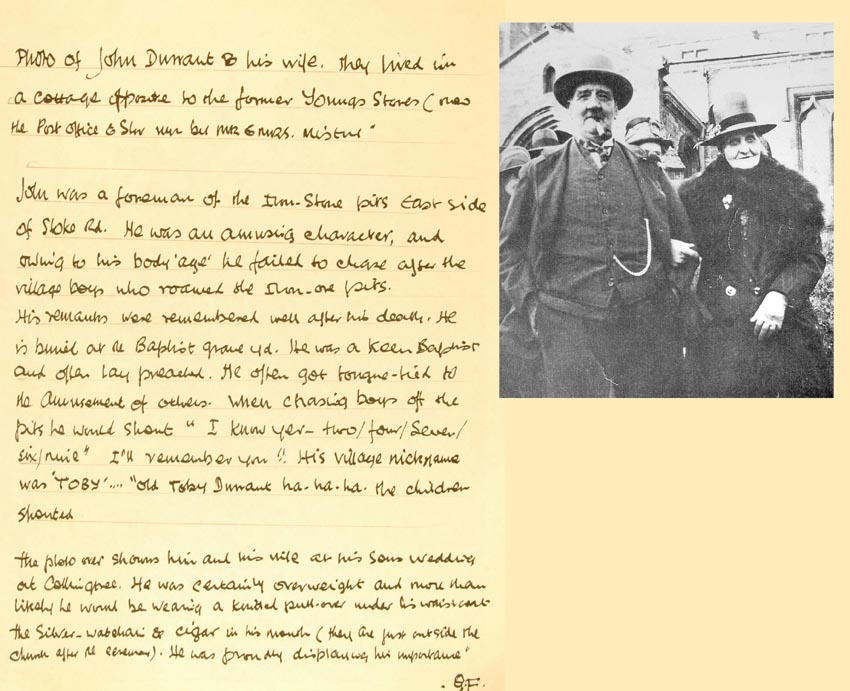 Photo of John Durrant & his wife. They lived in
a cottage opposite to the former Youngs Stores (now
the Post Office & Stor run by MR & MRS. Mistry"
John was a foreman of the Iron-Stone pits East side
of Stoke Rd. He was an amusing character, and
owing to his body 'age' he failed to chase after the
village boys who roamed the Iron-ore pits.
His remarks were remembered well after his death. He
is buried at the Baptist grave yd. He was a keen Baptist
and often lay preached. He often got tongue-tied to
the amusement of others. When chasing boys off the
pits he would shout " I know yer - two/four/seven/
six/nine" I'll remember you". His village nickname
was 'TOBY'.... "old Toby Durrant ha-ha-ha. the children
shouted
The photo over shows him and his wife at his sons wedding
at Collingtree. He was certainly overweight and more than
likely he would be wearing a knitted pull-over under his waistcoat.
the Silver-watchain & cigar in his mouth (they are just outside the
church after the ceremony). He was proudly displaying his importance"
. G.F.